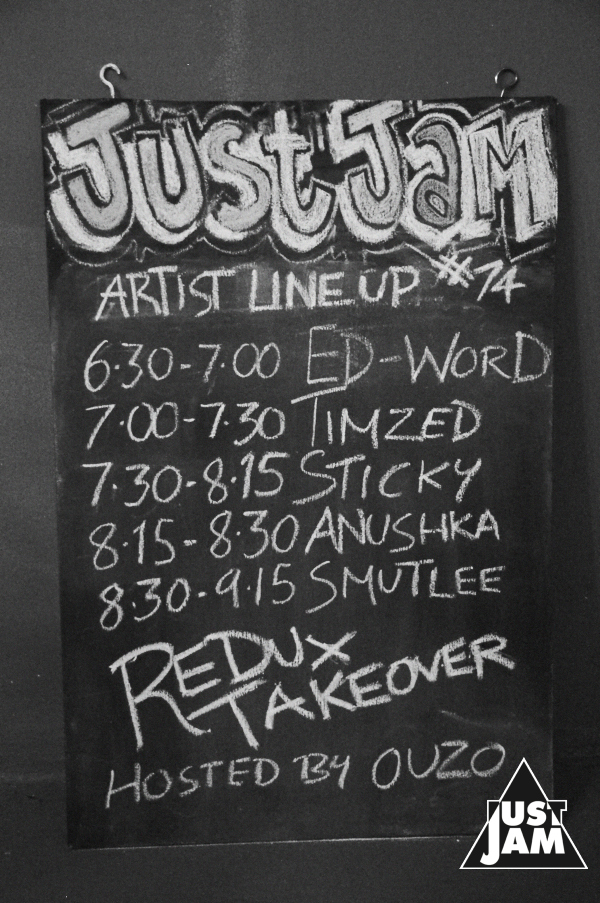 Just Jam
ARTIST LINE UP #74
6.30-7.00 ED-WORD
7.00-7.30 TIMZED
7.30-8.15 STICKY
8.15-8.30 ANUSHKA
8.30-9.15 SMUTLEE
REDUX
TAKEOVER
HOSTED BY OUZO
JUST
JAM